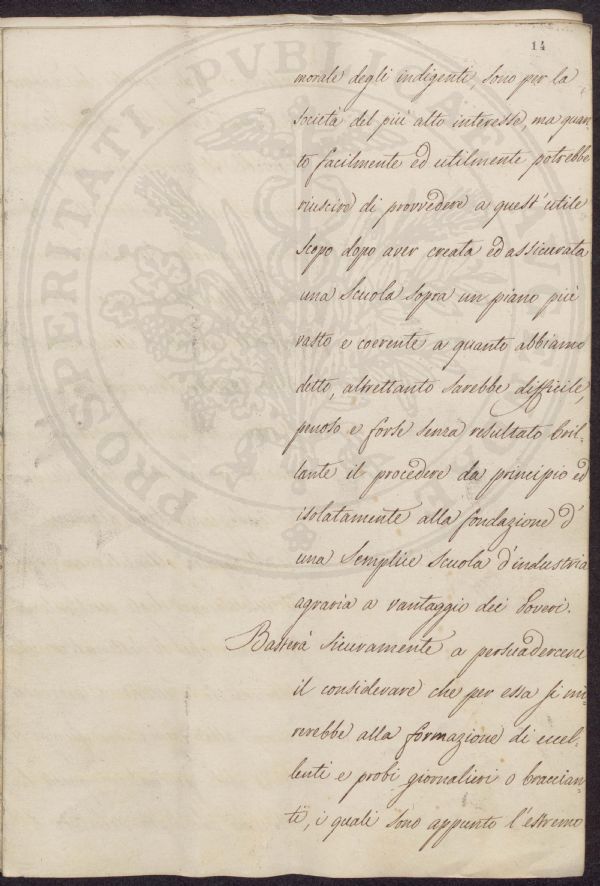 14
morale degli indigenti, sono per la
società del più alto interesse, ma quan-
to facilmente ed utilmente potrebbe
riuscire di provvedere a quest'utile
scopo dopo aver creata ed assicurata
una Scuola sopra un piano più
vasto e coerente a quanto abbiamo
detto, altrettanto sarebbe difficile,
penoso e forse senza resultato bril-
lante il procedere da principio ed
isolatamente alla fondazione d'
una Semplice scuola d'industria
agraria a vantaggio dei Poveri.
Basterà sicuramente a persuadercene
il considerare che per essa si mi-
rerebbe alla formazione di eccel-
lenti e probi giornalieri o braccian-
ti, i quali sono appunto l'estremo
PROSPERITATI PUBLICAE AUGENDAE